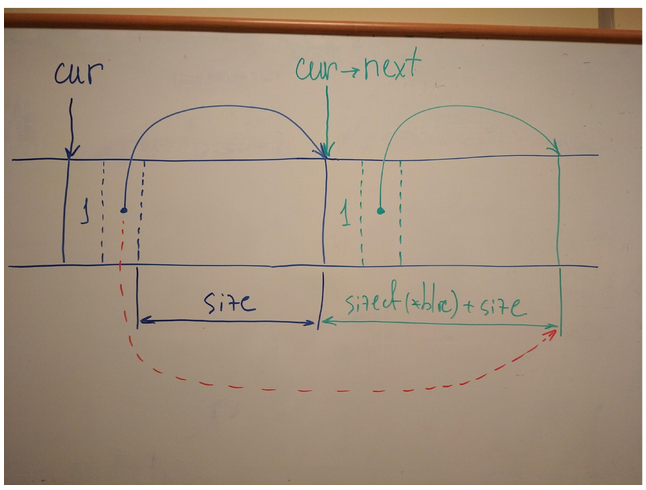 cur
cur→next
1
1
size
sizeof(*blk) + size